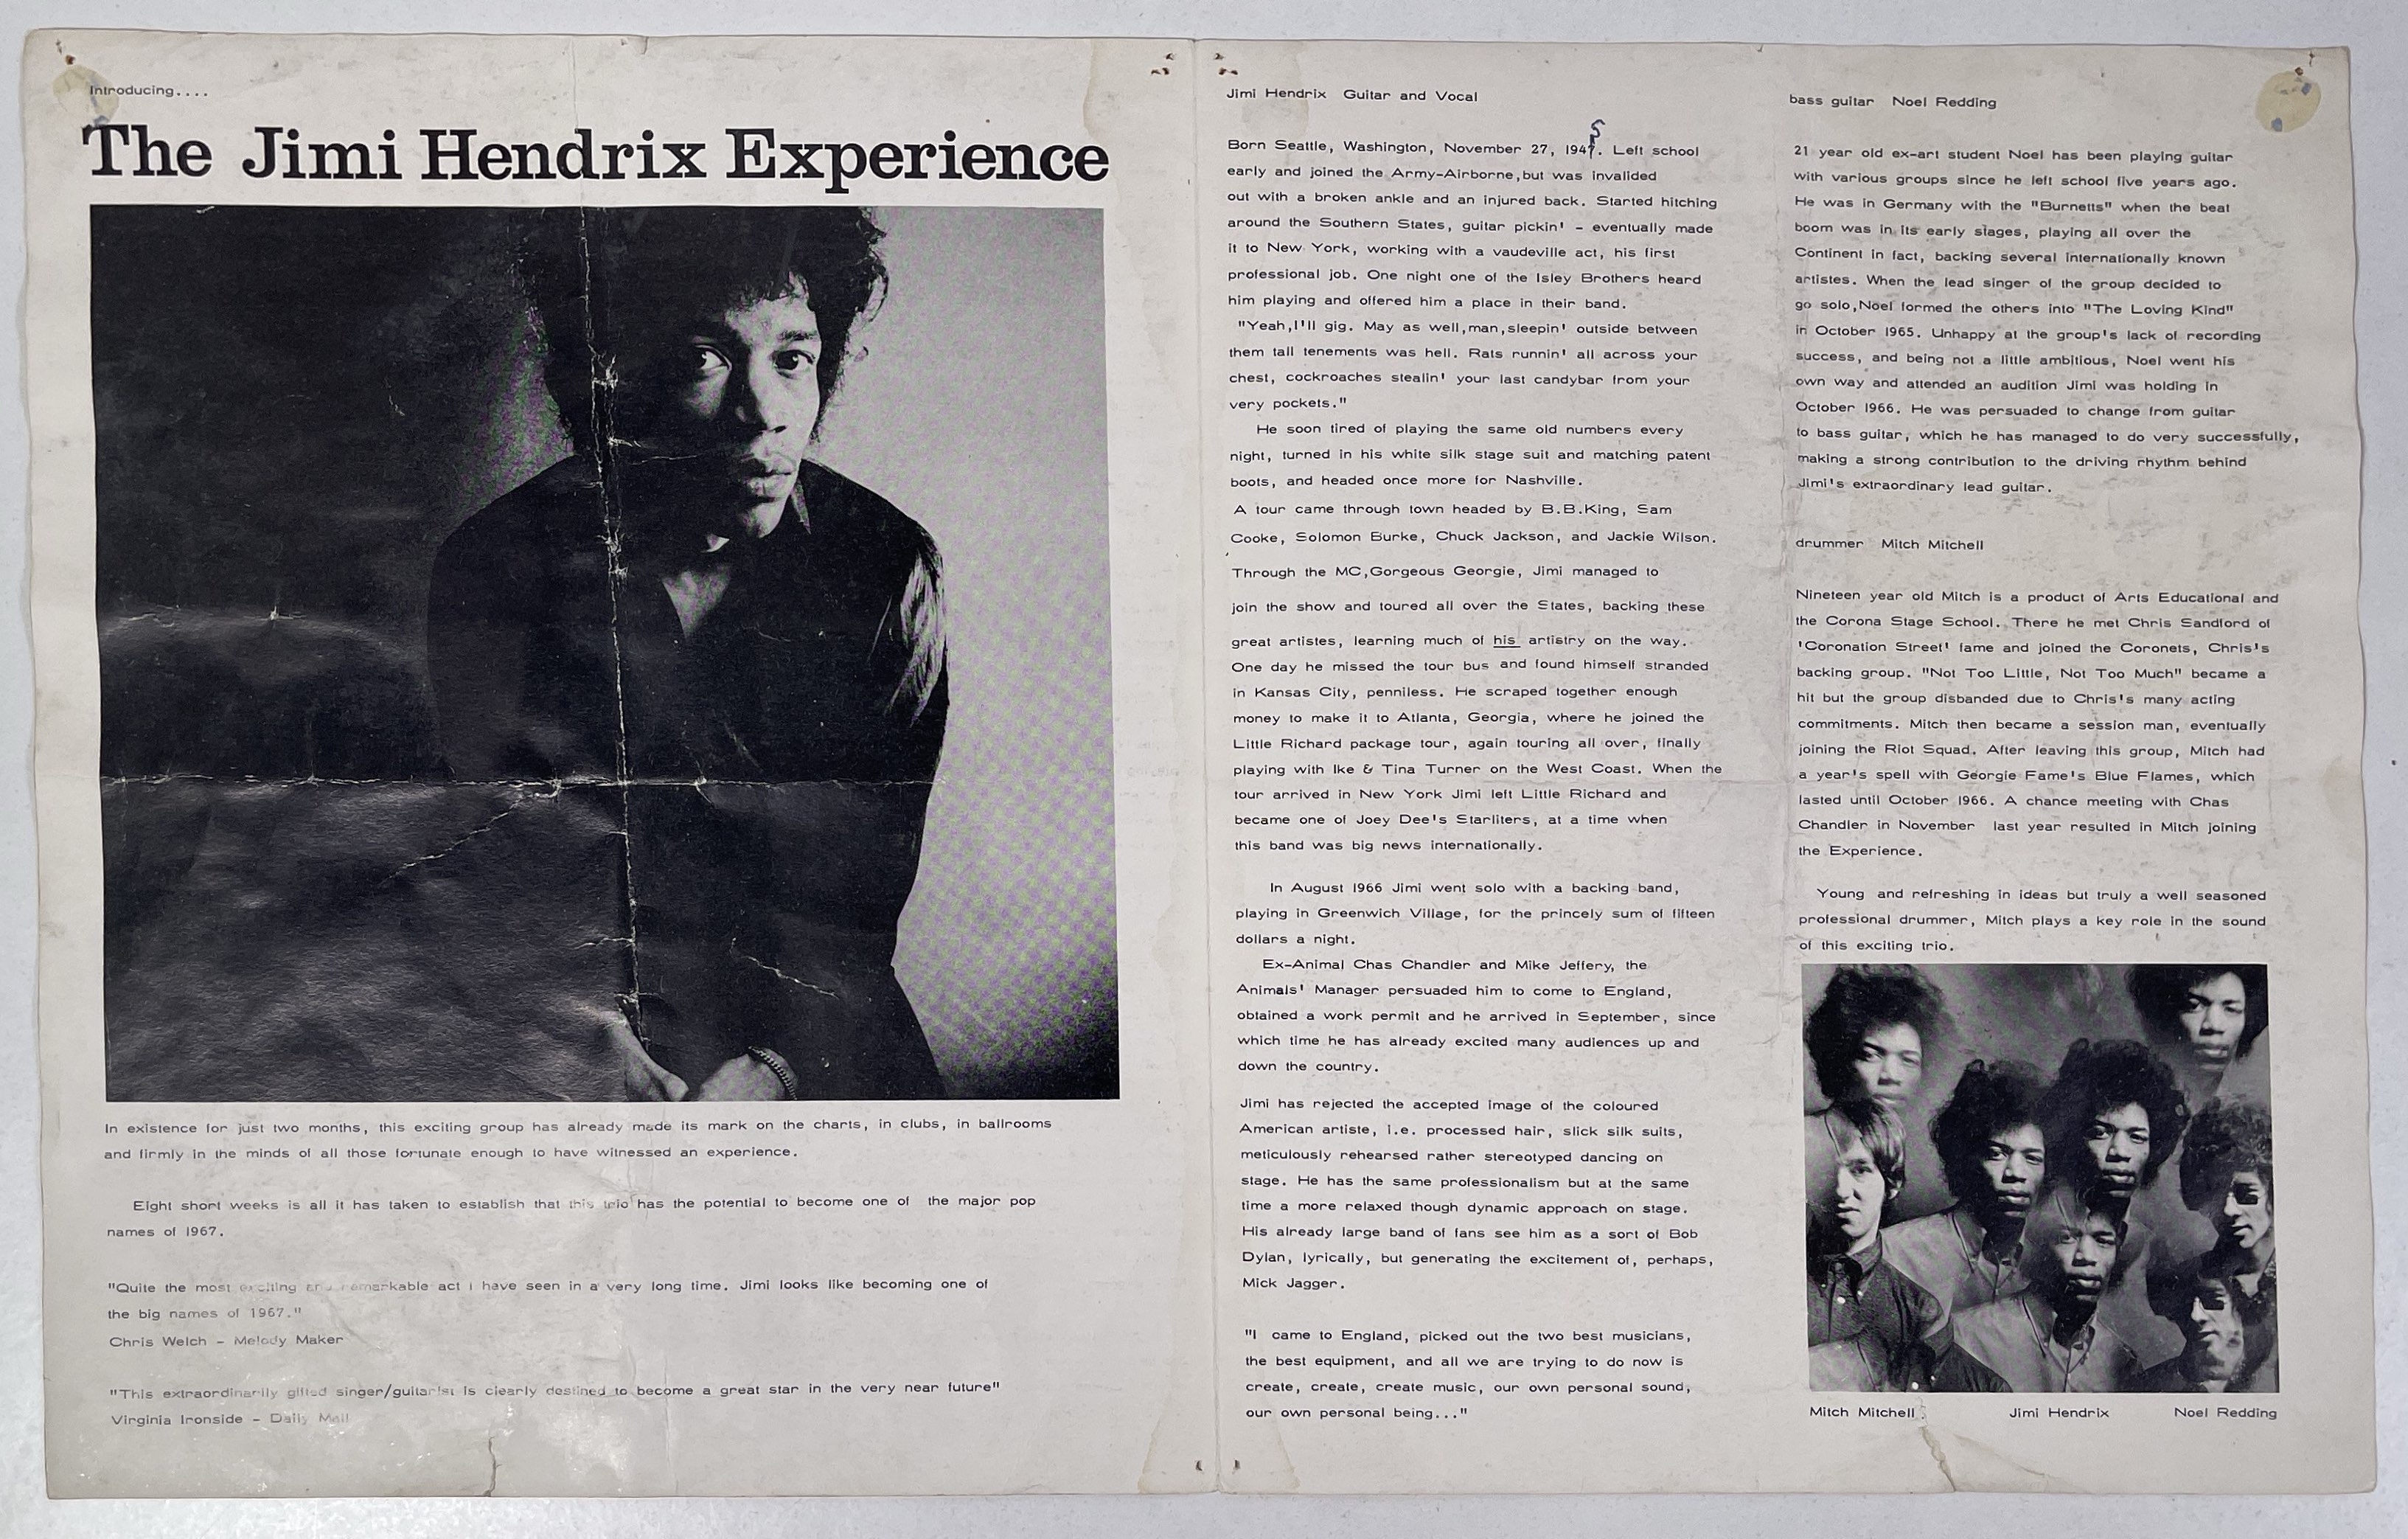 Introducing....
The Jimi Hendrix Experience
In existence for just two months, this exciting group has already made its mark on the charts, in clubs, in ballrooms
and firmly in the minds of all those fortunate enough to have witnessed an experience.
Eight short weeks is all it has taken to establish that this trio has the potential to become one of the major pop
names of 1967.
"Quite the most exciting and remarkable act I have seen in a very long time. Jimi looks like becoming one of
the big names of 1967."
Chris Welch - Melody Maker
"This extraordinarily gifted singer/guitarist is clearly destined to become a great star in the very near future"
Virginia Ironside - Daily Mail
Jimi Hendrix Guitar and Vocal
5
Born Seattle, Washington, November 27, 1947. Left school
early and joined the Army-Airborne,but was invalided
out with a broken ankle and an injured back. Started hitching
around the Southern States, guitar pickin' - eventually made
it to New York, working with a vaudeville act, his first
professional job. One night one of the Isley Brothers heard
him playing and offered him a place in their band.
"Yeah,I'll gig. May as well,man,sleepin' outside between
them tall tenements was hell. Rats runnin' all across your
chest, cockroaches stealin' your last candybar from your
very pockets."
He soon tired of playing the same old numbers every
night, turned in his white silk stage suit and matching patent
boots, and headed once more for Nashville.
A tour came through town headed by B.B.King, Sam
Cooke, Solomon Burke, Chuck Jackson, and Jackie Wilson.
Through the MC,Gorgeous Georgie, Jimi managed to
join the show and toured all over the States, backing these
great artistes, learning much of his artistry on the way.
One day he missed the tour bus and found himself stranded
in Kansas City, penniless. He scraped together enough
money to make it to Atlanta, Georgia, where he joined the
Little Richard package tour, again touring all over, finally
playing with Ike & Tina Turner on the West Coast. When the
tour arrived in New York Jimi left Little Richard and
became one of Joey Dee's Starliters, at a time when
this band was big news internationally.
In August 1966 Jimi went solo with a backing band,
playing in Greenwich Village, for the princely sum of fifteen
dollars a night.
Ex-Animal Chas Chandler and Mike Jeffery, the
Animals' Manager persuaded him to come to England,
obtained a work permit and he arrived in September, since
which time he has already excited many audiences up and
down the country.
Jimi has rejected the accepted image of the coloured
American artiste, i.e. processed hair, slick silk suits,
meticulously rehearsed rather stereotyped dancing on
stage. He has the same professionalism but at the same
time a more relaxed though dynamic approach on stage.
His already large band of fans see him as a sort of Bob
Dylan, lyrically, but generating the excitement of, perhaps,
Mick Jagger.
"I came to England, picked out the two best musicians,
the best equipment, and all we are trying to do now is
create, create, create music, our own personal sound,
our own personal being..."
bass guitar Noel Redding
21 year old ex-art student Noel has been playing guitar
with various groups since he left school five years ago.
He was in Germany with the "Burnetts" when the beat
boom was in its early stages, playing all over the
Continent in fact, backing several internationally known
artistes. When the lead singer of the group decided to
go solo,Noel formed the others into "The Loving Kind"
in October 1965. Unhappy at the group's lack of recording
success, and being not a little ambitious, Noel went his
own way and attended an audition Jimi was holding in
October 1966. He was persuaded to change from guitar
to bass guitar, which he has managed to do very successfully,
making a strong contribution to the driving rhythm behind
Jimi's extraordinary lead guitar.
drummer Mitch Mitchell
Nineteen year old Mitch is a product of Arts Educational and
the Corona Stage School. There he met Chris Sandford of
'Coronation Street' fame and joined the Coronets, Chris's
backing group. "Not Too Little, Not Too Much" became a
hit but the group disbanded due to Chris's many acting
commitments. Mitch then became a session man, eventually
joining the Riot Squad. After leaving this group, Mitch had
a year's spell with Georgie Fame's Blue Flames, which
lasted until October 1966. A chance meeting with Chas
Chandler in November last year resulted in Mitch joining
the Experience.
Young and refreshing in ideas but truly a well seasoned
professional drummer, Mitch plays a key role in the sound
of this exciting trio.
Mitch Mitchell Jimi Hendrix Noel Redding